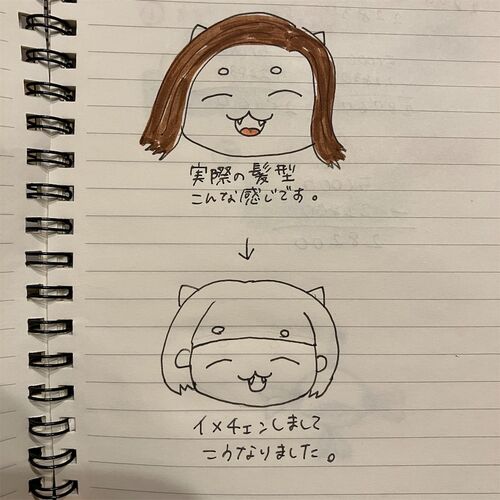 実際の髪型
こんな感じです。
↓
イメチェンしまして
こうなりました。